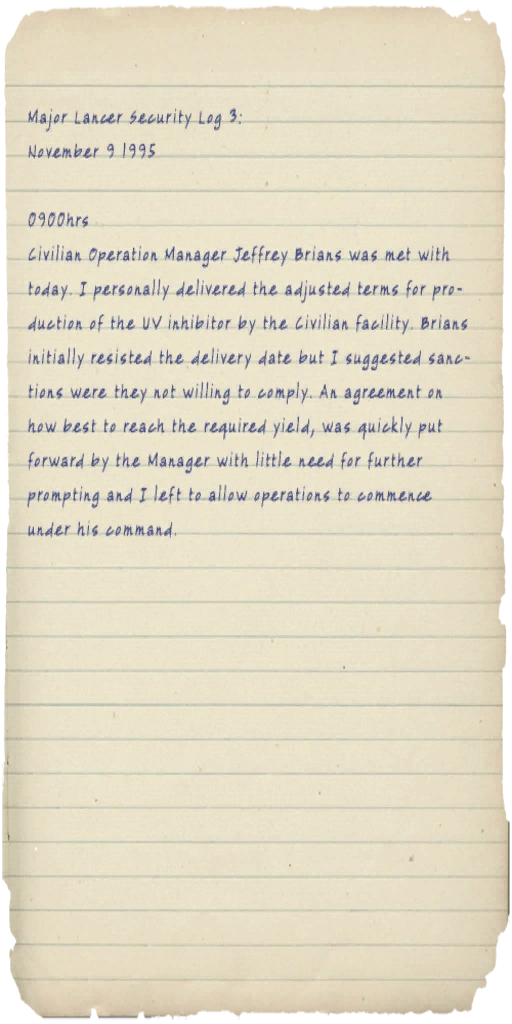 Major Lancer Security Log 3:
November 9 1995
0900hrs
Civilian Operation Manager Jeffrey Brians was met with
today. I personally delivered the adjusted terms for pro-
duction of the UV inhibitor by the Civilian facility. Brians
initially resisted the delivery date but I suggested sanc-
tions were they not willing to comply. An agreement on
how best to reach the required yield, was quickly put
forward by the Manager with little need for further
prompting and I left to allow operations to commence
under his command.